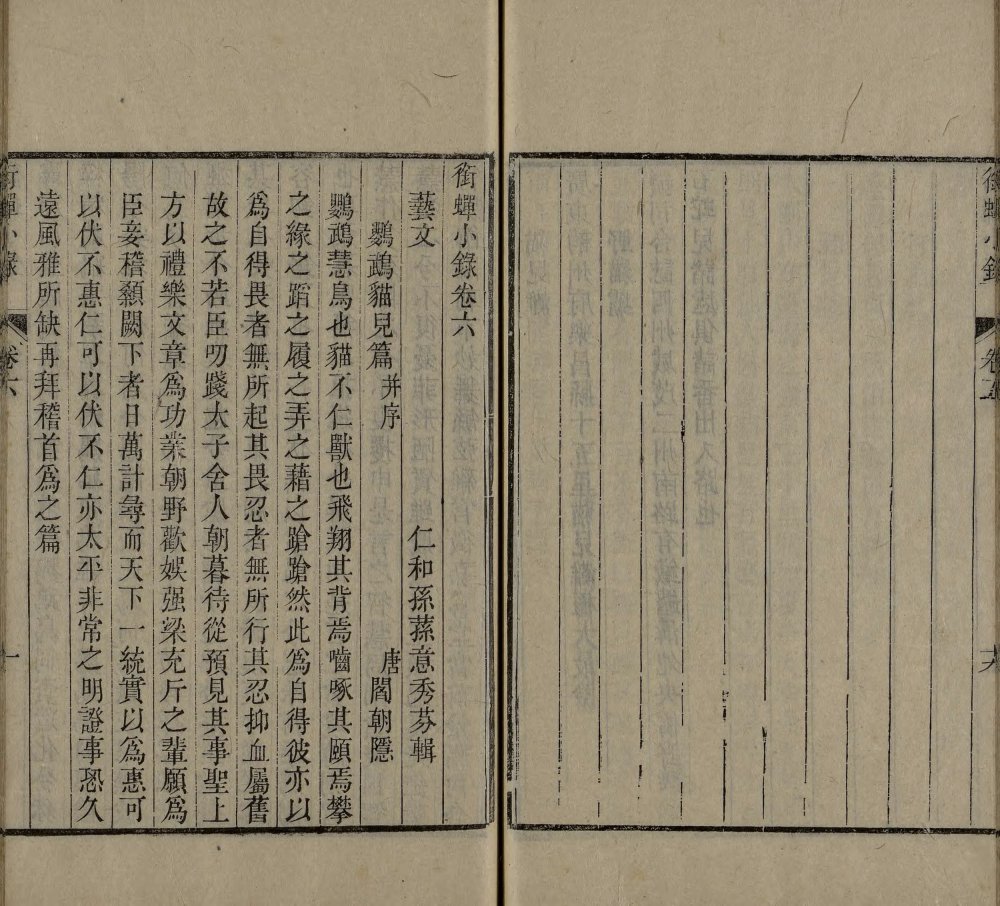 衘蟬小錄 卷五 十六
衘蟬小錄卷六
藝文 仁和孫蓀意秀芬輯
鸚鵡貓兒篇 并序 唐 閻朝隱
鸚鵡慧鳥也貓不仁獸也飛翔其背焉嚙啄其頤焉攀
之緣之蹈之履之弄之藉之蹌蹌然此爲自得彼亦以
爲自得畏者無所起其畏忍者無所行其忍抑血屬舊
故之不若臣叨踐太子舍人朝暮待從預見其事聖上
方以禮樂文章爲功業朝野歡娛强梁充斥之輩願爲
臣妾稽顙闕下者日萬計尋而天下一統實以爲惠可
以伏不惠仁可以伏不仁亦太平非常之明證事恐久
遠風雅所缺再拜稽首爲之篇
衘蟬小錄 卷六 一